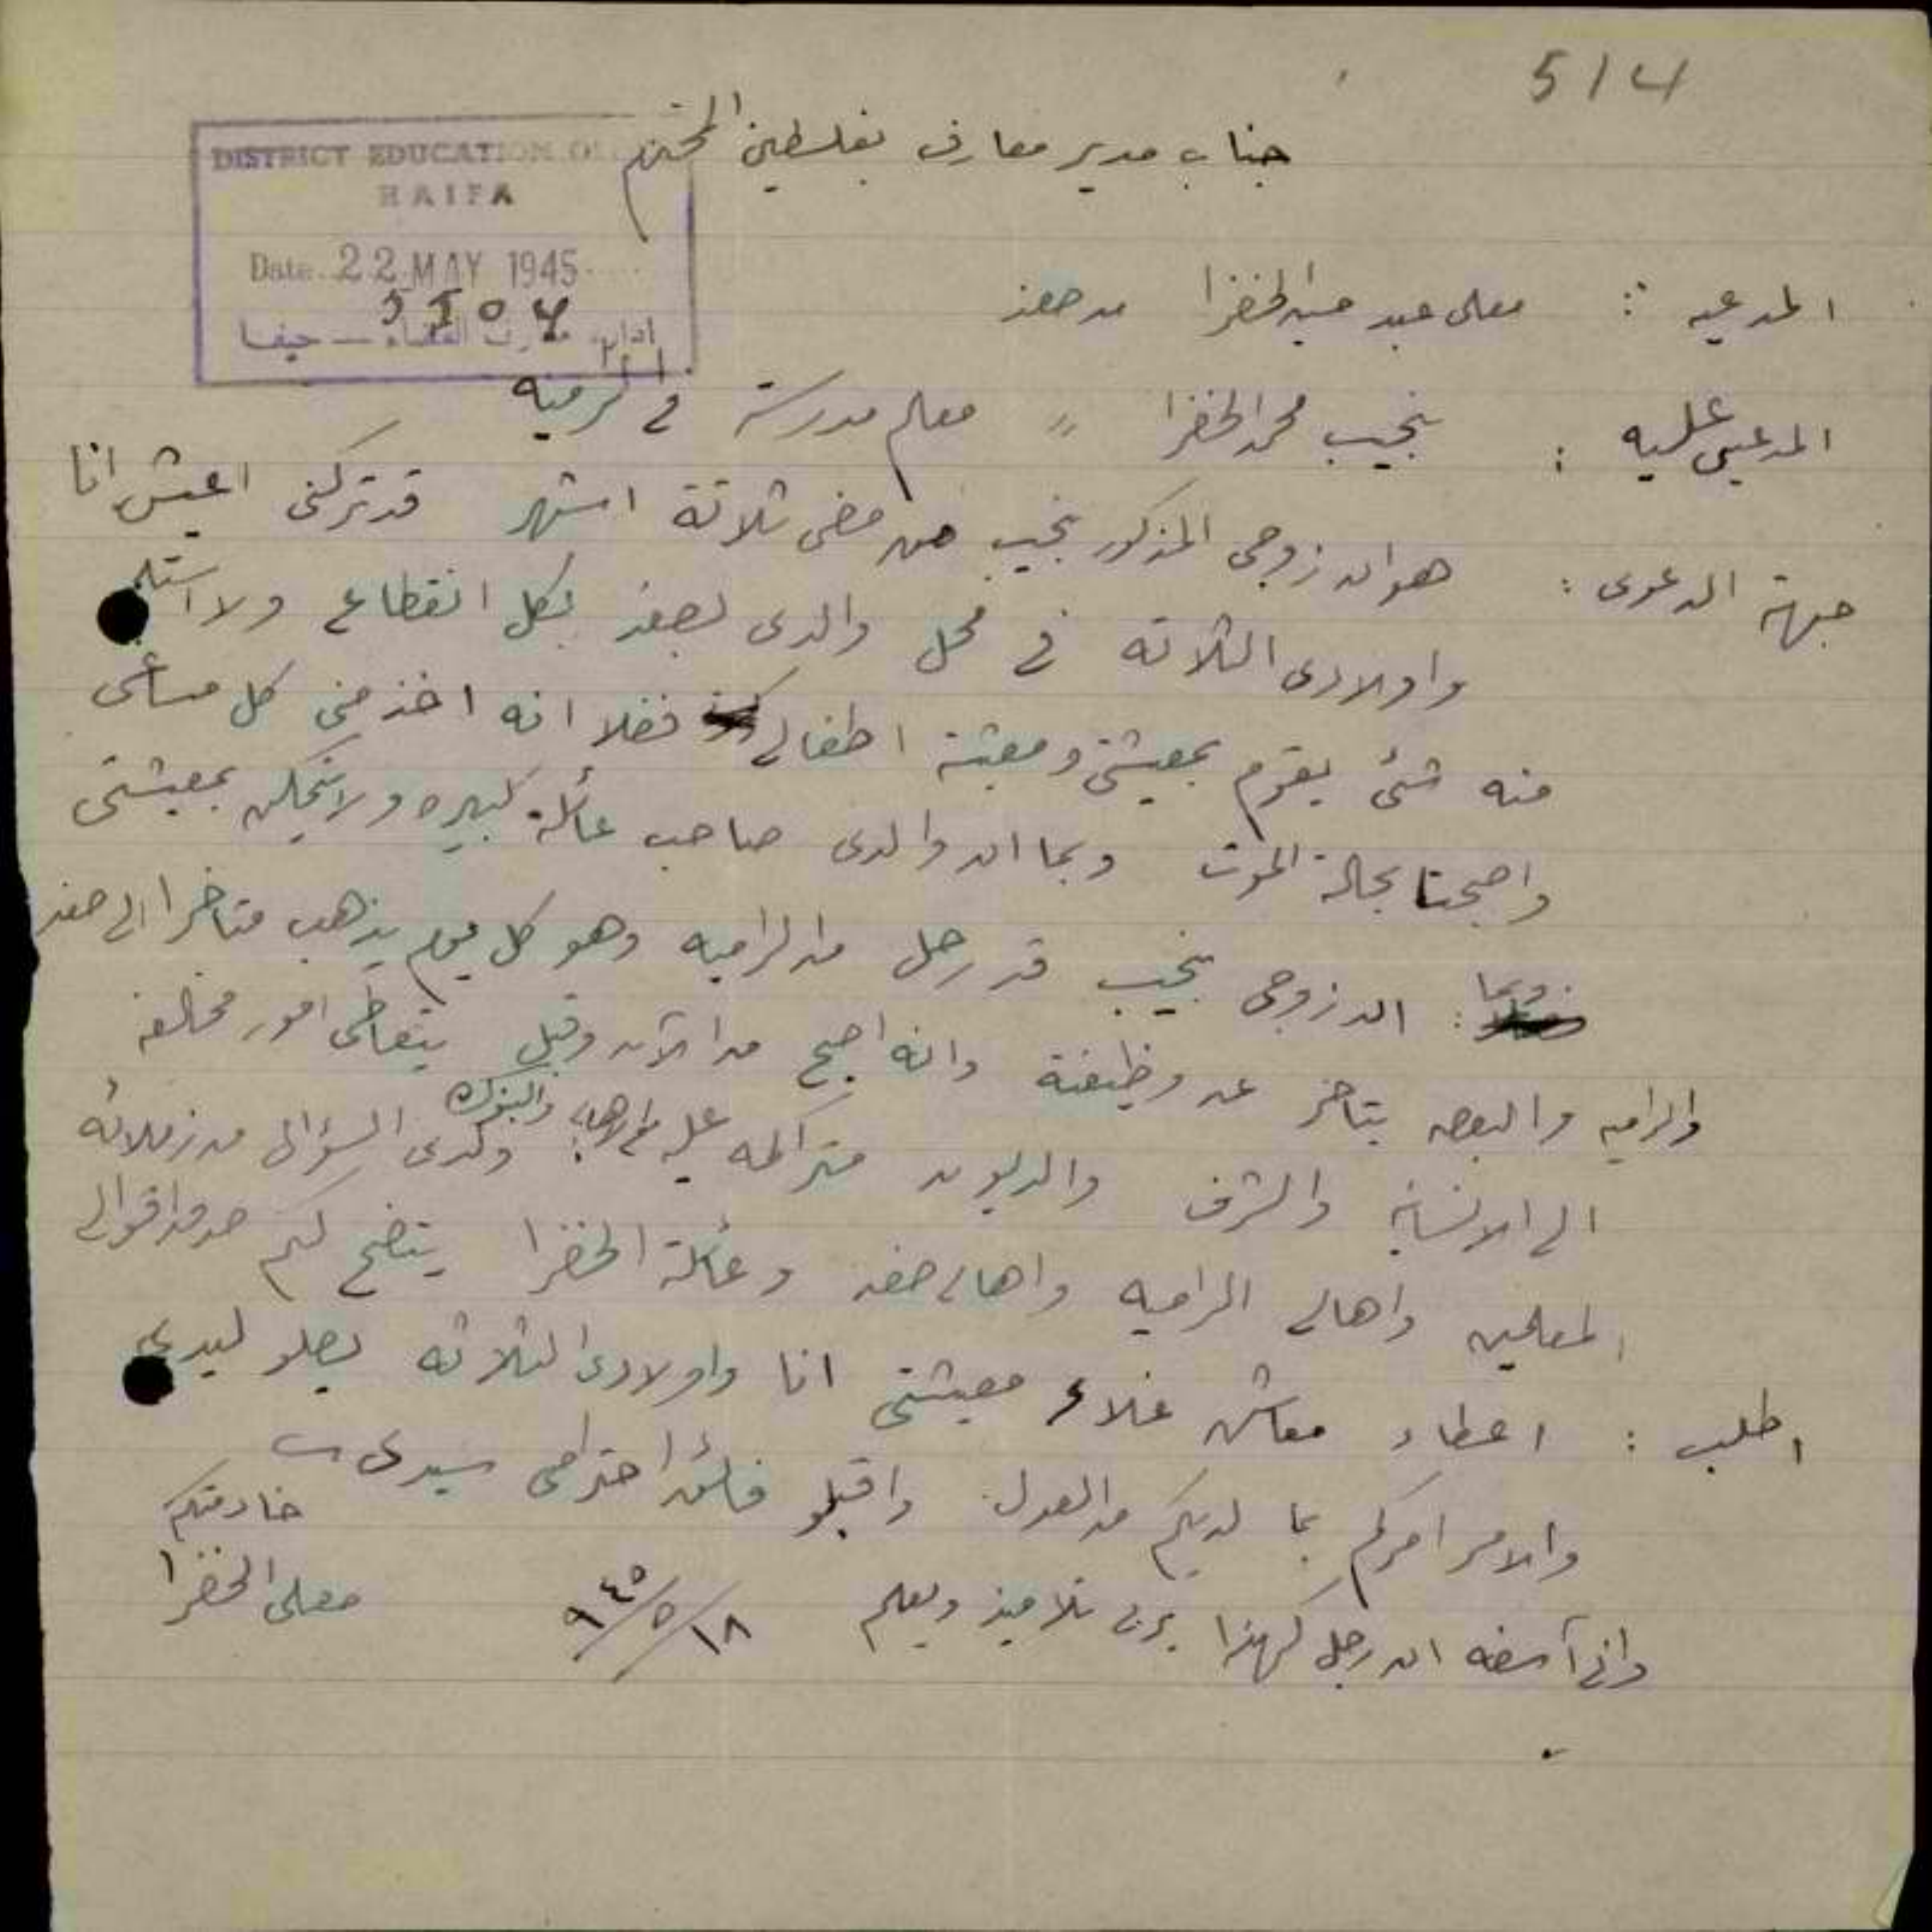 5/4
جناب مدير معارف بفلسطين المحترم
DISTRICT EDUCATION
HAIFA
Date. 22 MAY 1945
5504
ادارة معارف القضاء — حيفا
المدعيه : معلى عبد الخضرا من صفد
المدعي عليه : نجيب محمد الخضرا " معلم مدرسة في الراميه
جهة الدعوى : هو ان زوجي المذكور نجيب من مضى ثلاثة اشهر قد تركني اعيش انا
واولادي الثلاثه في محل والدي بصفد بكل انقطاع ولا استلم
منه شئ يقوم بمعيشتي ومعيشة اطفالي فضلا انه اخذ مني كل مصاغي
واصبحنا بحالة الموت وبما ان والدي صاحب عائلة كبيره ولا يتمكن بمعيشتي
وبما : ان زوجي نجيب قد رحل من الراميه وهو كل يوم يذهب متاخرا الى صفد
والراميه والبعض يتاخر عن وظيفته وانه اصبح من الآن وقبل يتعاطى امور مخالفه
الى الانسانيه والشرف والديون متراكمه عليه والبنوك ولدى السؤال من زملائه
المعلمين واهالي الراميه واهالي صفد وعائلة الخضرا يتضح لكم صدق اقوالي
اطلب : اعطاء معاش غلاء معيشتي انا واولادي الثلاثه
والامر امركم بما لديكم من العدل واقبلو فائق احترامي سيدي
خادمتكم
معلى الخضرا
واني آسفه ان رجل كهذا يربي تلاميذ ويعلم ١٨/٥/٩٤٥